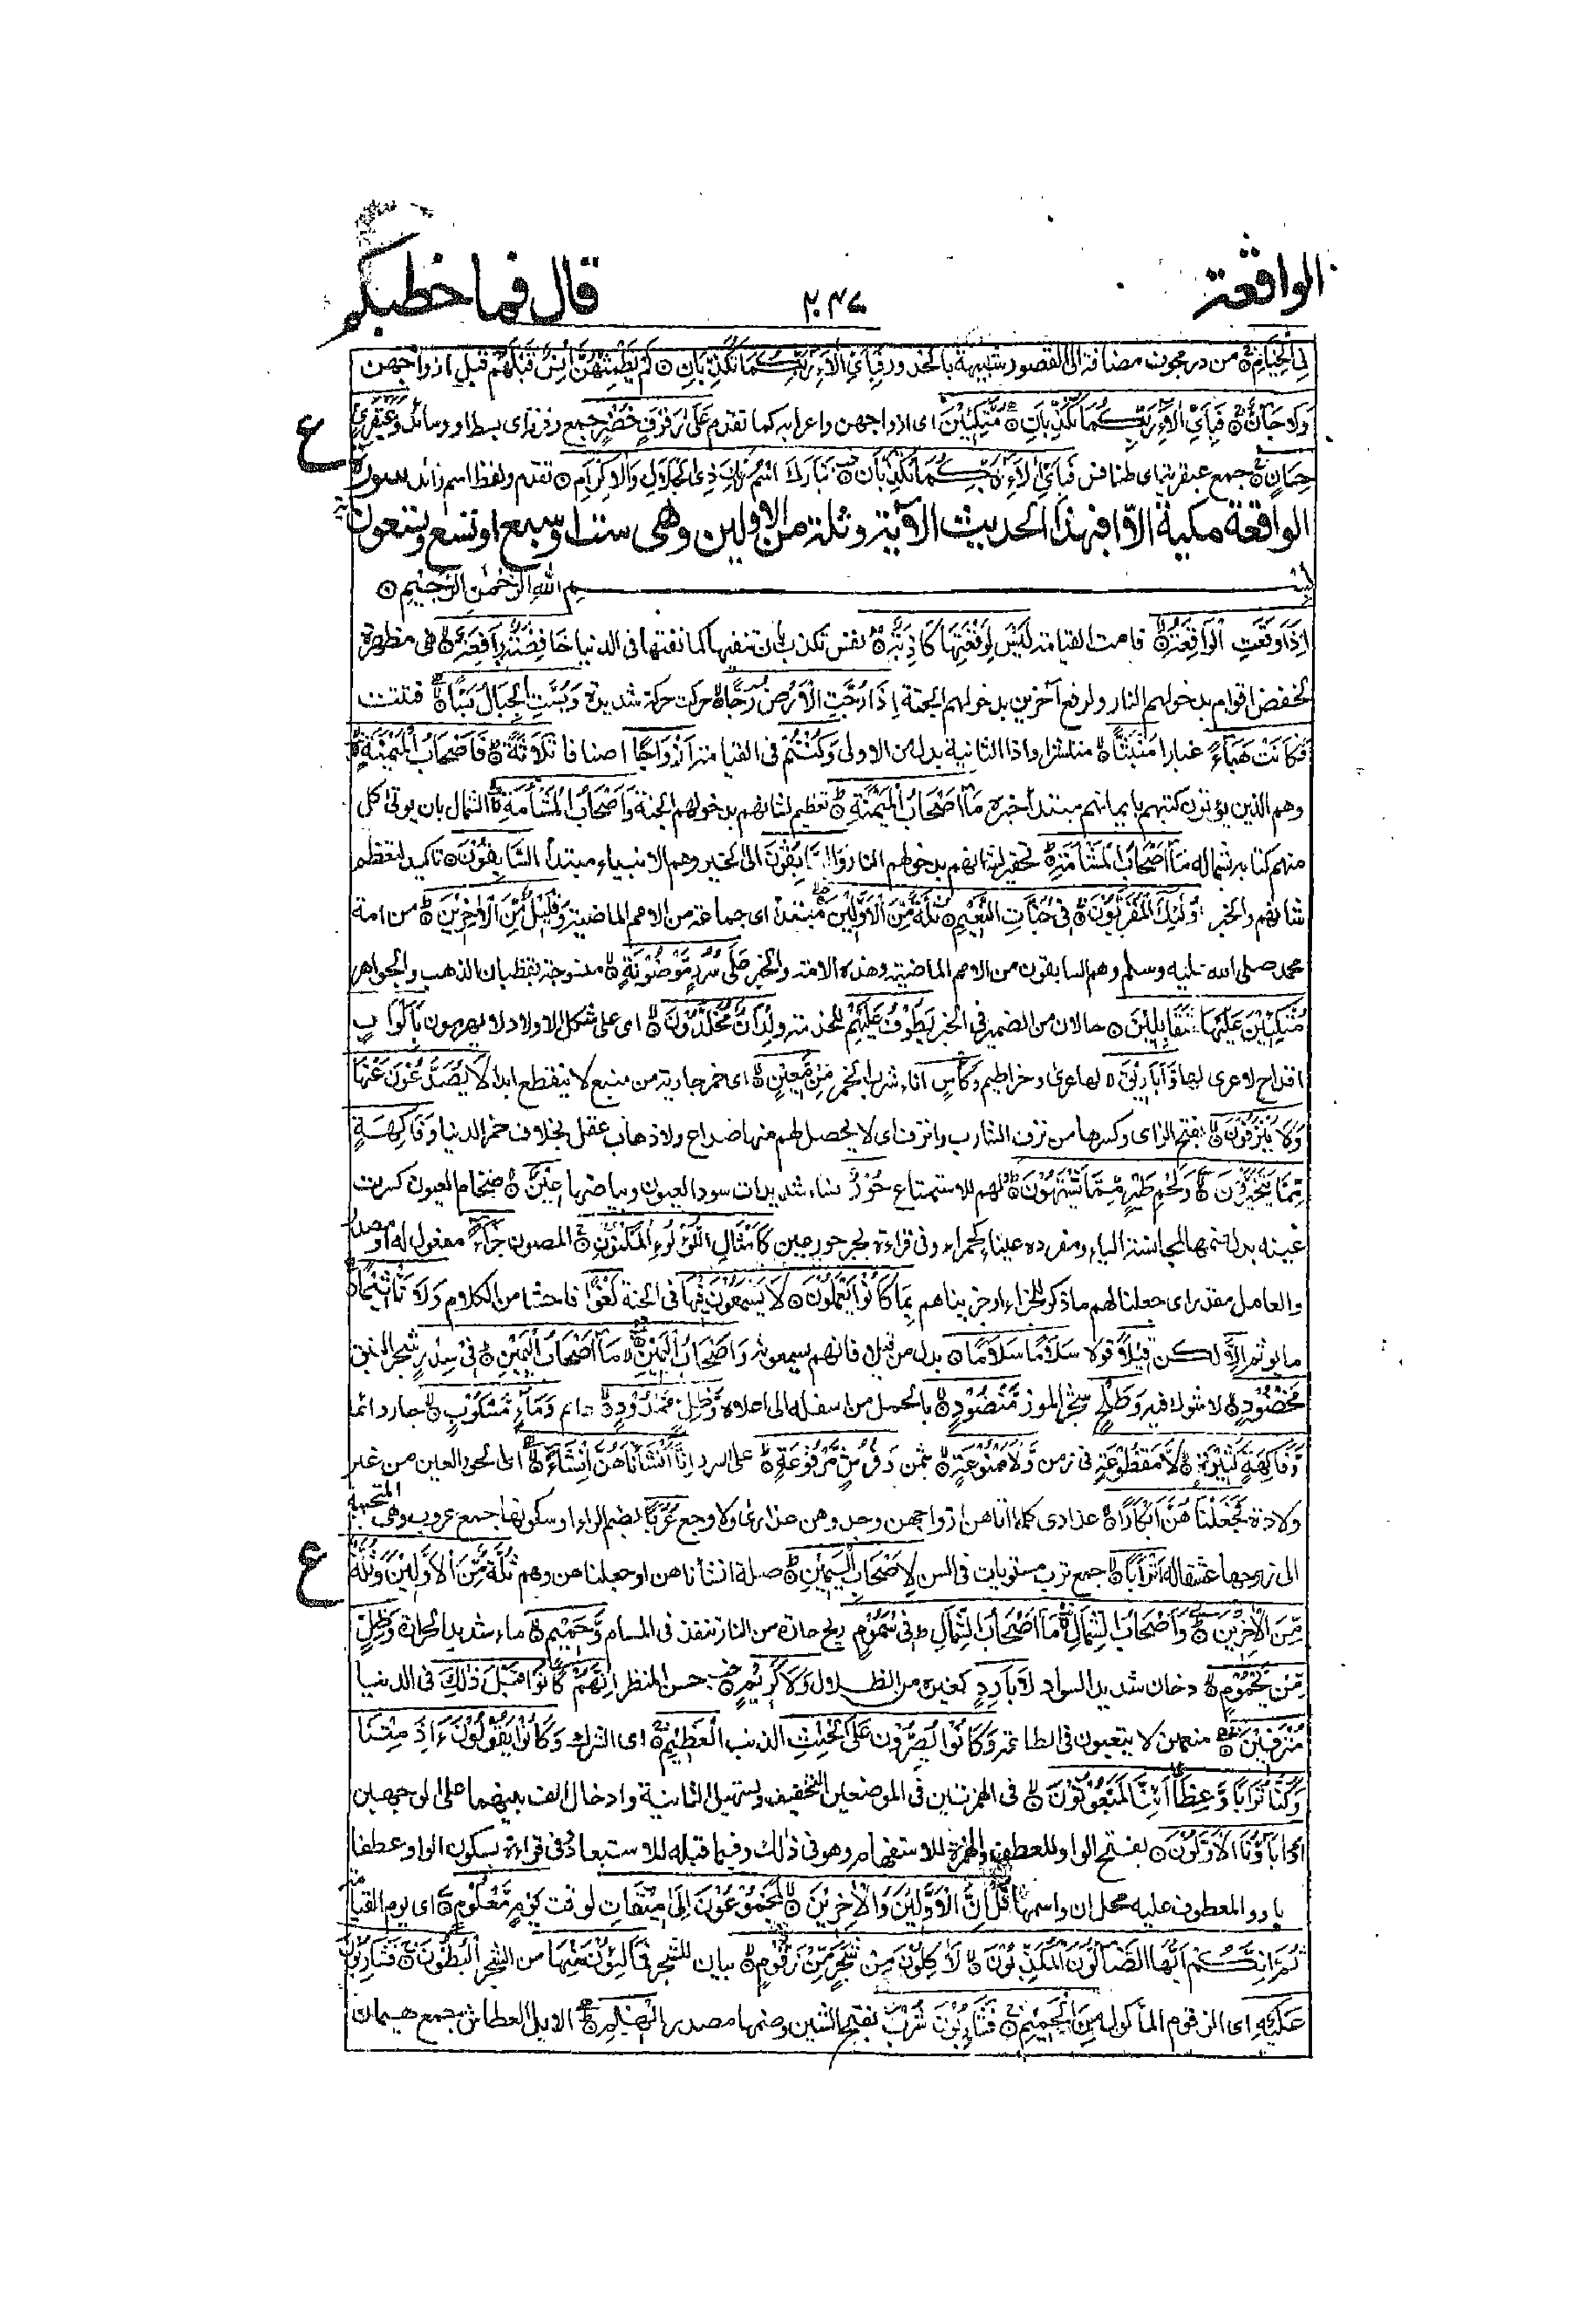 الواقعة
٢٠٤٧
قال فما خطبكم
فِي الْخِيَامِ من در مجوف مضافة الى القصور شبيهة بالخدور فَبِأَيِّ اٰلَاءِ رَبِّكُمَا تُكَذِّبَانِ لَمْ يَطْمِثْهُنَّ اِنْسٌ قَبْلَهُمْ قبل ازواجهن
وَلَا جَانٌّ فَبِأَيِّ اٰلَاءِ رَبِّكُمَا تُكَذِّبَانِ مُتَّكِئِيْنَ اى ازواجهن واعرابه كما تقدم عَلٰى رَفْرَفٍ خُضْرٍ جمع رفرفة اى بسط او وسائد وَعَبْقَرِيٍّ
ع
حِسَانٍ جمع عبقرية اى طنافس فَبِأَيِّ اٰلَاءِ رَبِّكُمَا تُكَذِّبَانِ تَبَارَكَ اسْمُ رَبِّكَ ذِى الْجَلَالِ وَالْاِكْرَامِ تقدم ولفظ اسم زائد سورة
الواقعة مكية الا افبهذا الحديث الآية وثلة من الاولين وهى ست او سبع او تسع وتسعون اية
بسم الله الرحمن الرحيم
اِذَا وَقَعَتِ الْوَاقِعَةُ قامت القيامة لَيْسَ لِوَقْعَتِهَا كَاذِبَةٌ نفس تكذب بان تنفيها كما نفتها فى الدنيا خَافِضَةٌ رَّافِعَةٌ هى مظهرة
لخفض اقوام بدخولهم النار ولرفع آخرين بدخولهم الجنة اِذَا رُجَّتِ الْاَرْضُ رَجًّا حركت حركة شديدة وَبُسَّتِ الْجِبَالُ بَسًّا فتتت
فَكَانَتْ هَبَاءً غبارا مُنْبَثًّا منتشرا واذا الثانية بدل من الاولى وَكُنْتُمْ فى القيامة اَزْوَاجًا اصنافا ثَلَاثَةً فَاَصْحَابُ الْمَيْمَنَةِ
وهم الذين يؤتون كتبهم بايمانهم مبتدأ خبره مَا اَصْحَابُ الْمَيْمَنَةِ تعظيم لشانهم بدخولهم الجنة وَاَصْحَابُ الْمَشْأَمَةِ الشمال بان يؤتى كل
منهم كتابه بشماله مَا اَصْحَابُ الْمَشْأَمَةِ تحقير لشانهم بدخولهم النار وَالسَّابِقُوْنَ الى الخير وهم الانبياء مبتدأ السَّابِقُوْنَ تاكيد لتعظيم
شانهم والخبر اُولٰئِكَ الْمُقَرَّبُوْنَ فِيْ جَنّٰتِ النَّعِيْمِ ثُلَّةٌ مِّنَ الْاَوَّلِيْنَ مبتدأ اى جماعة من الامم الماضية وَقَلِيْلٌ مِّنَ الْاٰخِرِيْنَ من امة
محمد صلى الله عليه وسلم وهم السابقون من الامم الماضية وهذه الامة والخبر عَلٰى سُرُرٍ مَّوْضُوْنَةٍ منسوجة بقضبان الذهب والجواهر
مُتَّكِئِيْنَ عَلَيْهَا مُتَقَابِلِيْنَ حالان من الضمير فى الخبر يَطُوْفُ عَلَيْهِمْ للخدمة وِلْدَانٌ مُّخَلَّدُوْنَ اى على شكل الاولاد لا يهرمون بِاَكْوَابٍ
اقداح لا عرى لها وَّاَبَارِيْقَ لها عرى وخراطيم وَكَأْسٍ اناء شراب الخمر مِّنْ مَّعِيْنٍ اى خمر جارية من منبع لا ينقطع ابدا لَا يُصَدَّعُوْنَ عَنْهَا
وَلَا يُنْزِفُوْنَ بفتح الزاى وكسرها من نزف الشارب وانزف اى لا يحصل لهم منها صداع ولا ذهاب عقل بخلاف خمر الدنيا وَفَاكِهَةٍ
مِّمَّا يَتَخَيَّرُوْنَ وَلَحْمِ طَيْرٍ مِّمَّا يَشْتَهُوْنَ ولهم للاستمتاع حُوْرٌ نساء شديدات سود العيون وبياضها عِيْنٌ ضخام العيون كسرت
عينه بدل ضمها لمجانسة الياء ومفرده عيناء كحمراء وفى قراءة بجر حور عين كَاَمْثَالِ اللُّؤْلُؤِ الْمَكْنُوْنِ المصون جَزَاءً مفعول له او مصدر
والعامل مقدر اى جعلنا لهم ما ذكر للجزاء او جزيناهم بِمَا كَانُوْا يَعْمَلُوْنَ لَا يَسْمَعُوْنَ فِيْهَا فى الجنة لَغْوًا فاحشا من الكلام وَلَا تَأْثِيْمًا
ما يؤثم اِلَّا لكن قِيْلًا قولا سَلَامًا سَلَامًا بدل من قيلا فانهم يسمعونه وَاَصْحَابُ الْيَمِيْنِ مَا اَصْحَابُ الْيَمِيْنِ فِيْ سِدْرٍ شجر النبق
مَّخْضُوْدٍ لا شوك فيه وَطَلْحٍ شجر الموز مَّنْضُوْدٍ بالحمل من اسفله الى اعلاه وَّظِلٍّ مَّمْدُوْدٍ دايم وَّمَاءٍ مَّسْكُوْبٍ جار دائما
وَّفَاكِهَةٍ كَثِيْرَةٍ لَّا مَقْطُوْعَةٍ فى زمن وَّلَا مَمْنُوْعَةٍ بثمن وَّفُرُشٍ مَّرْفُوْعَةٍ على السرر اِنَّا اَنْشَأْنَاهُنَّ اِنْشَاءً اى الحور العين من غير
ولادة فَجَعَلْنَاهُنَّ اَبْكَارًا عذارى كلما اتاهن ازواجهن وجدوهن عذارى ولا وجع عُرُبًا بضم الراء او سكونها جمع عروب وهى المتحببة
ع
الى زوجها عشقا له اَتْرَابًا جمع ترب مستويات فى السن لِاَصْحَابِ الْيَمِيْنِ صلة انشأناهن او جعلناهن وهم ثُلَّةٌ مِّنَ الْاَوَّلِيْنَ وَثُلَّةٌ
مِّنَ الْاٰخِرِيْنَ وَاَصْحَابُ الشِّمَالِ مَا اَصْحَابُ الشِّمَالِ فِيْ سَمُوْمٍ ريح حارة من النار تنفذ فى المسام وَّحَمِيْمٍ ماء شديد الحرارة وَّظِلٍّ
مِّنْ يَّحْمُوْمٍ دخان شديد السواد لَّا بَارِدٍ كغيره من الظلال وَّلَا كَرِيْمٍ حسن المنظر اِنَّهُمْ كَانُوْا قَبْلَ ذٰلِكَ فى الدنيا
مُتْرَفِيْنَ منعمين لا يتعبون فى الطاعة وَكَانُوْا يُصِرُّوْنَ عَلَى الْحِنْثِ الذنب الْعَظِيْمِ اى الشرك وَكَانُوْا يَقُوْلُوْنَ ءَاِذَا مِتْنَا
وَكُنَّا تُرَابًا وَّعِظَامًا اَئِنَّا لَمَبْعُوْثُوْنَ فى الهمزتين فى الموضعين التخفيف وتسهيل الثانية وادخال الف بينهما على الوجهين
اَوَاٰبَاؤُنَا الْاَوَّلُوْنَ بفتح الواو للعطف والهمزة للاستفهام وهو فى ذلك وفيما قبله للاستبعاد وفى قراءة بسكون الواو عطفا
باو والمعطوف عليه محل ان واسمها قُلْ اِنَّ الْاَوَّلِيْنَ وَالْاٰخِرِيْنَ لَمَجْمُوْعُوْنَ اِلٰى مِيْقَاتِ لوقت يَوْمٍ مَّعْلُوْمٍ اى يوم القيامة
ثُمَّ اِنَّكُمْ اَيُّهَا الضَّالُّوْنَ الْمُكَذِّبُوْنَ لَاٰكِلُوْنَ مِنْ شَجَرٍ مِّنْ زَقُّوْمٍ بيان للشجر فَمَالِئُوْنَ مِنْهَا من الشجر الْبُطُوْنَ فَشَارِبُوْنَ
عَلَيْهِ اى الزقوم المأكول مِنَ الْحَمِيْمِ فَشَارِبُوْنَ شُرْبَ بفتح الشين وضمها مصدر الْهِيْمِ الابل العطاش جمع هيمان